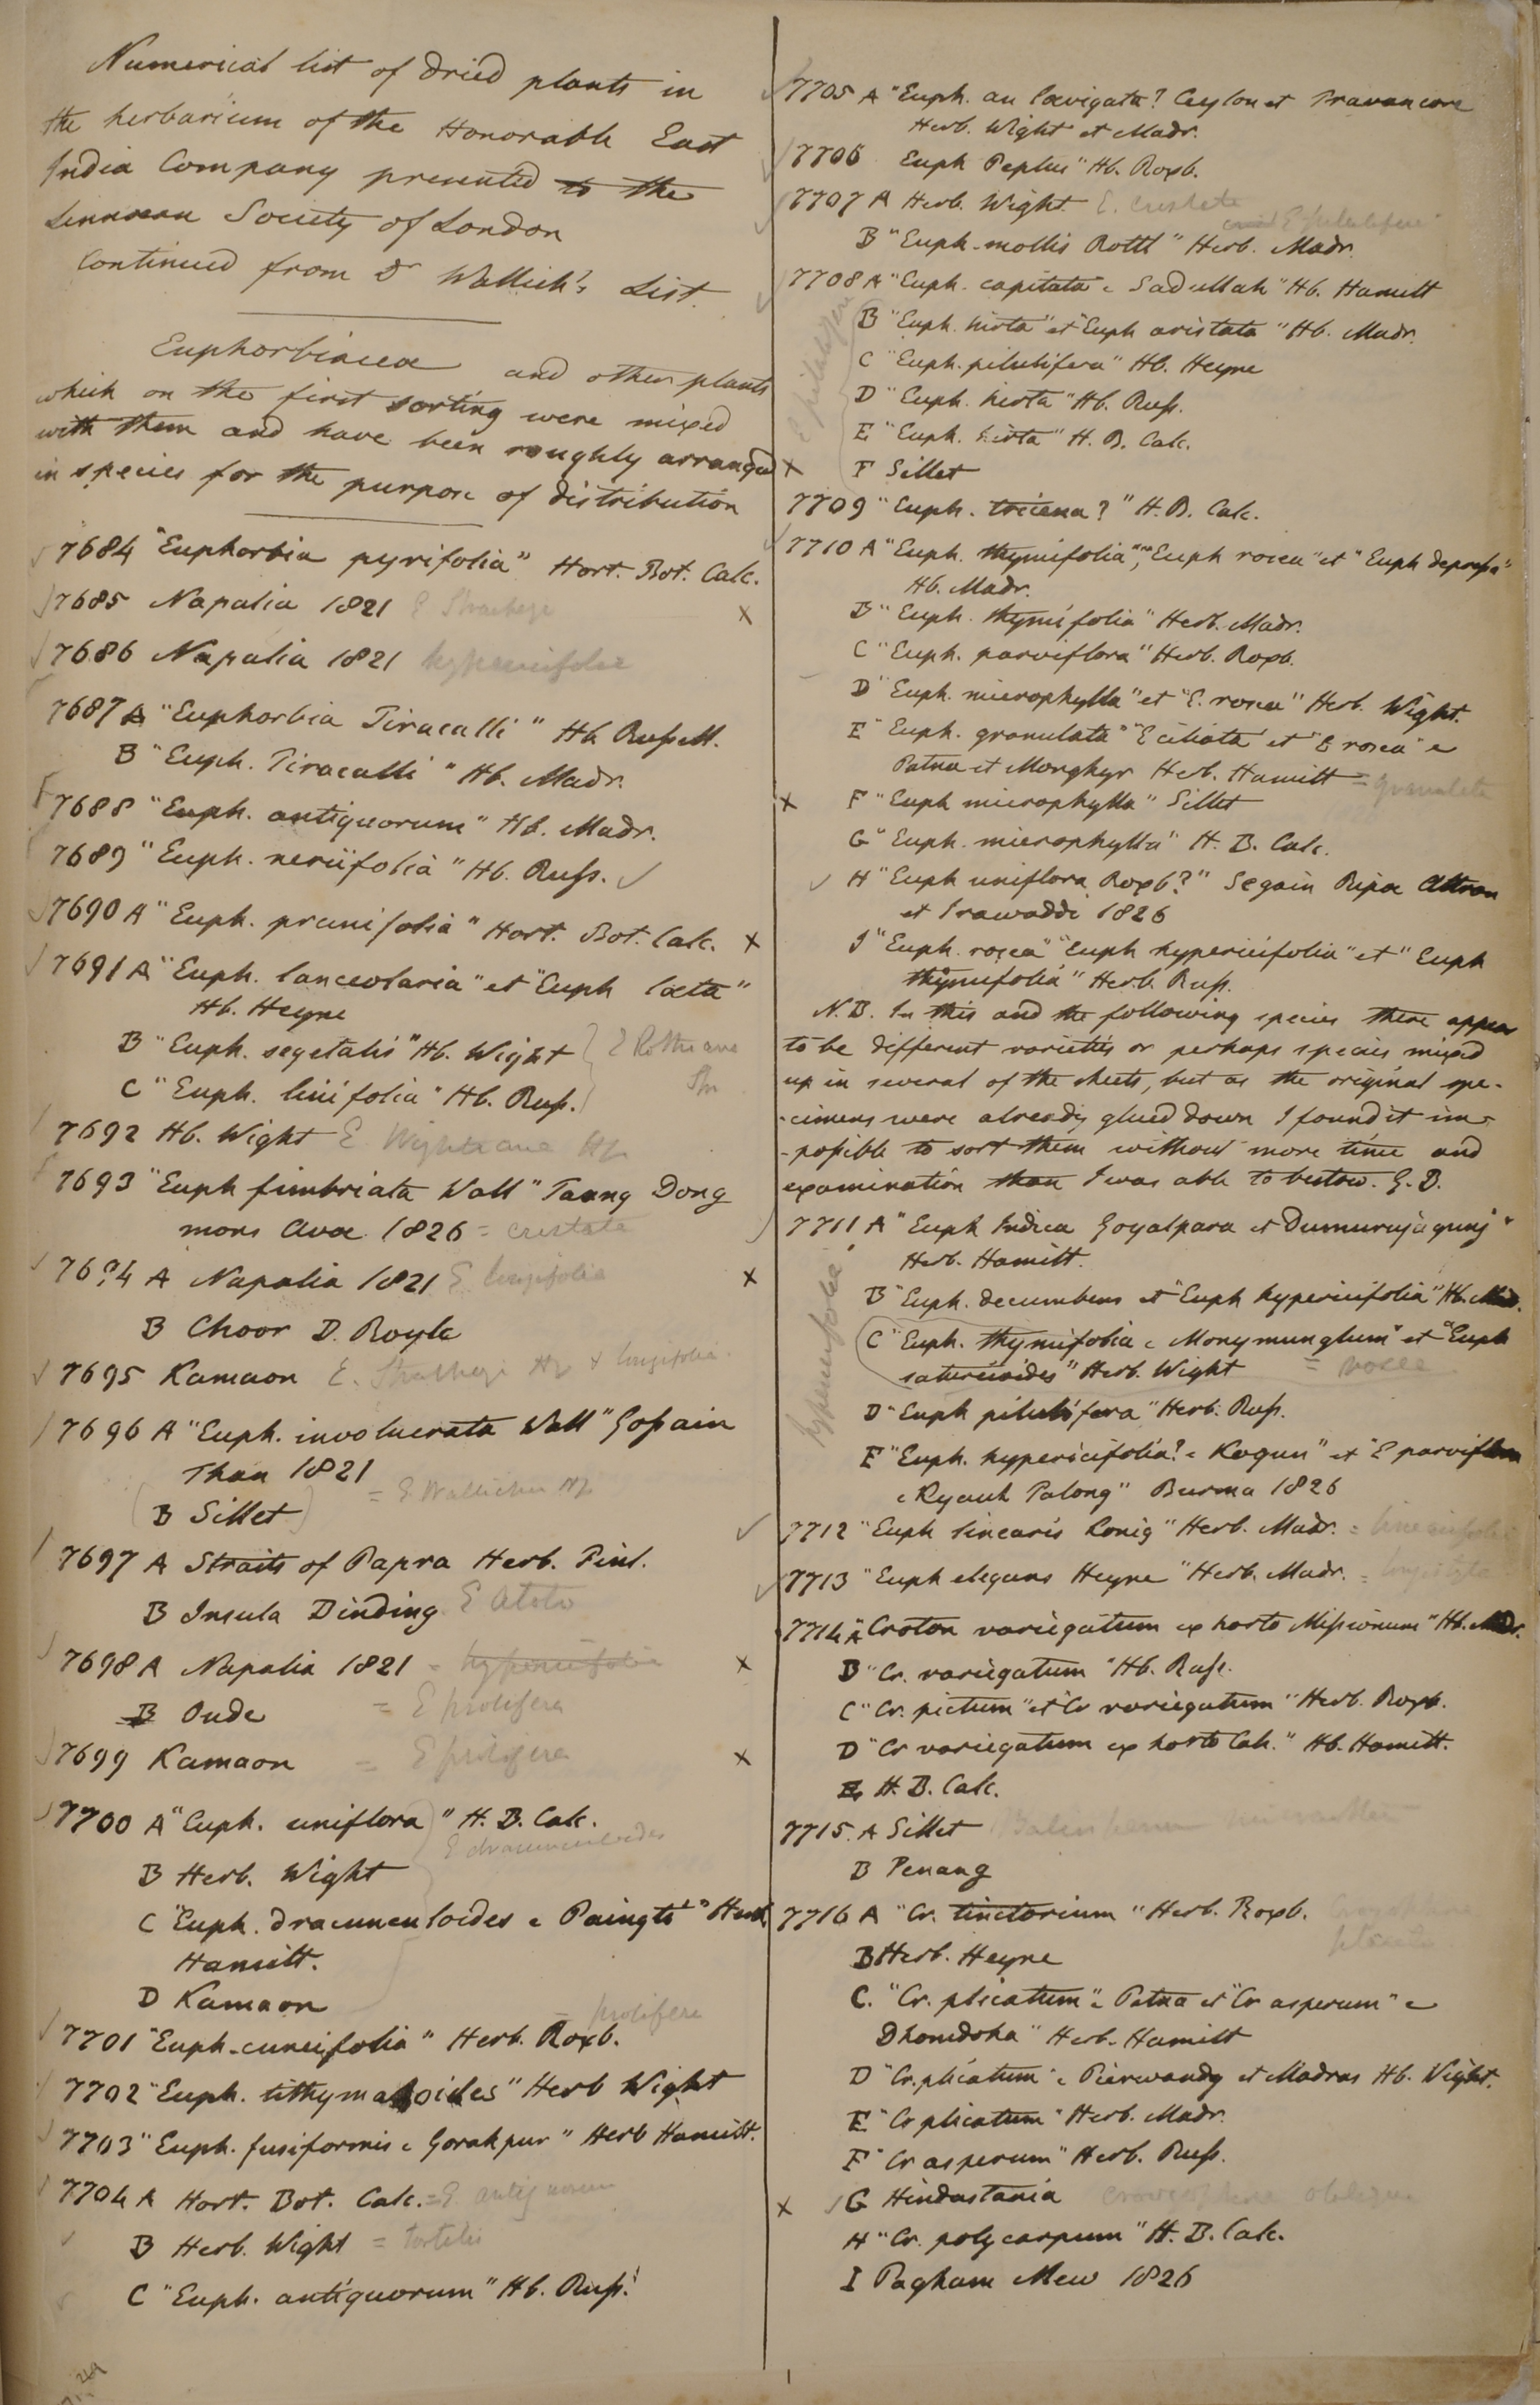 Numerical list of dried plants in
the herbarium of the Honorable East
India Company presented to the
Linnaean Society of London
Continued from Dr Wallich's List.
Euphorbiaceæ and other plants
which on the first sorting were mixed
with them and have been roughly arranged
in species for the purpose of distribution
7684 "Euphorbia pyrifolia" Hort. Bot. Calc.
7685 Napalia 1821 E Stracheyi x
7686 Napalia 1821 hypericifolia
7687 A "Euphorbia Tiracalli" Hb. Russell.
B "Euph. Tiracalli" Hb. Madr.
7688 "Euph. antiquorum" Hb. Madr.
7689 "Euph. neriifolia" Hb. Russ. ✓
7690 A "Euph. prunifolia" Hort. Bot. Calc. x
7691 A "Euph. lanceolaria" et "Euph læta"
Hb. Heyne
B "Euph. segetalis" Hb. Wight E Rothiana
C "Euph. linifolia" Hb. Russ. Spr
7692 Hb. Wight E Wightiana
7693 "Euph fimbriata Wall" Taong Dong
mons Avæ 1826 = cristata
7694 A Napalia 1821 E longifolia x
B Choor D. Royle
7695 Kamaon E. Stracheyi & longifolia
7696 A "Euph. involucrata Wall" Gossain
Than 1821
B Sillet = E Wallichii
7697 A Straits of Papra Herb. Finl.
B Insula Dinding E Atoto
7698 A Napalia 1821 = hypericifolia x
B Oude = E prolifera
7699 Kamaon = E prolifera x
7700 A "Euph. uniflora" H. B. Calc.
B Herb. Wight E dracunculoides
C "Euph. dracunculoides e Paingti" Herb.
Hamilt.
D Kamaon
= prolifera
7701 "Euph. cuneifolia" Herb. Roxb.
7702 "Euph. tithymaloides" Herb Wight
7703 "Euph. fusiformis e Gorakpur" Herb Hamilt.
7704 A Hort. Bot. Calc. = E antiquorum
B Herb. Wight = tortilis
C "Euph. antiquorum" Hb. Russ.
7705 A "Euph. an lævigata? Ceylon et Travancore
Herb. Wight et Madr.
7706 Euph Peplus" Hb. Roxb.
7707 A Herb. Wight E. cristata
and E pilulifera
B "Euph. mollis Rottl" Herb. Madr.
7708 A "Euph. capitata e Sadullah" Hb. Hamilt
B "Euph. hirta" et "Euph aristata" Hb. Madr.
C "Euph. pilulifera" Hb. Heyne
D "Euph. hirta" Hb. Russ.
E "Euph. hirta" H. B. Calc.
E pilulifera
x F Sillet
7709 "Euph. triciena?" H. B. Calc.
7710 A "Euph. thymifolia", "Euph rosea" et "Euph depressa"
Hb. Madr.
B "Euph. thymifolia" Herb. Madr.
C "Euph. parviflora" Herb. Roxb.
D "Euph. microphylla" et "E. rosea" Herb. Wight.
E "Euph. granulata" "E ciliata" et "E rosea" e
Patna et Monghyr Herb. Hamilt = granulata
x F "Euph microphylla" Sillet
G "Euph. microphylla" H. B. Calc.
✓ H "Euph uniflora Roxb?" Segain Ripæ Attran
et Irawaddi 1826
I "Euph. rosea" "Euph hypericifolia" et "Euph
thymifolia" Herb. Russ.
N.B. In this and the following species there appear
to be different varieties or perhaps species mixed
up in several of the sheets, but as the original spe-
-cimens were already glued down I found it im-
-possible to sort them without more time and
examination than I was able to bestow. G. B.
7711 A "Euph Indica Goyalpara et Dumurujagunj"
Herb. Hamilt.
B "Euph. decumbens et "Euph hypericifolia" Hb. Mad.
C "Euph. thymifolia e Monymunglum" et "Euph
saturcioides" Herb. Wight = rosea
D "Euph pilulifera" Herb. Russ.
hypericifolia
E "Euph. hypericifolia? e Kogun" et "E parviflora
e Kyouk Talong" Burma 1826
7712 "Euph linearis Konig" Herb. Madr. = linearifolia
7713 "Euph elegans Heyne" Herb. Madr. = longistyla
7714 A "Croton variegatum ex horto Missionum" Hb. Madr.
B "Cr. variegatum" Hb. Russ.
C "Cr. pictum" et "Cr variegatum" Herb. Roxb.
D "Cr variegatum ex horto Calc." Hb. Hamilt.
E H. B. Calc.
7715. A Sillet
B Penang
7716 A "Cr. tinctorium" Herb. Roxb.
B Herb. Heyne
C. "Cr. plicatum" e Patna et "Cr asperum" e
Dhomdoha" Herb. Hamilt
D "Cr. plicatum" e Pierwandy et Madras Hb. Wight.
E "Cr plicatum" Herb. Madr.
F "Cr asperum" Herb. Russ.
x ✓ G Hindustania Crozophora obliqua
H "Cr. polycarpum" H. B. Calc.
I Pagham Mew 1826
1